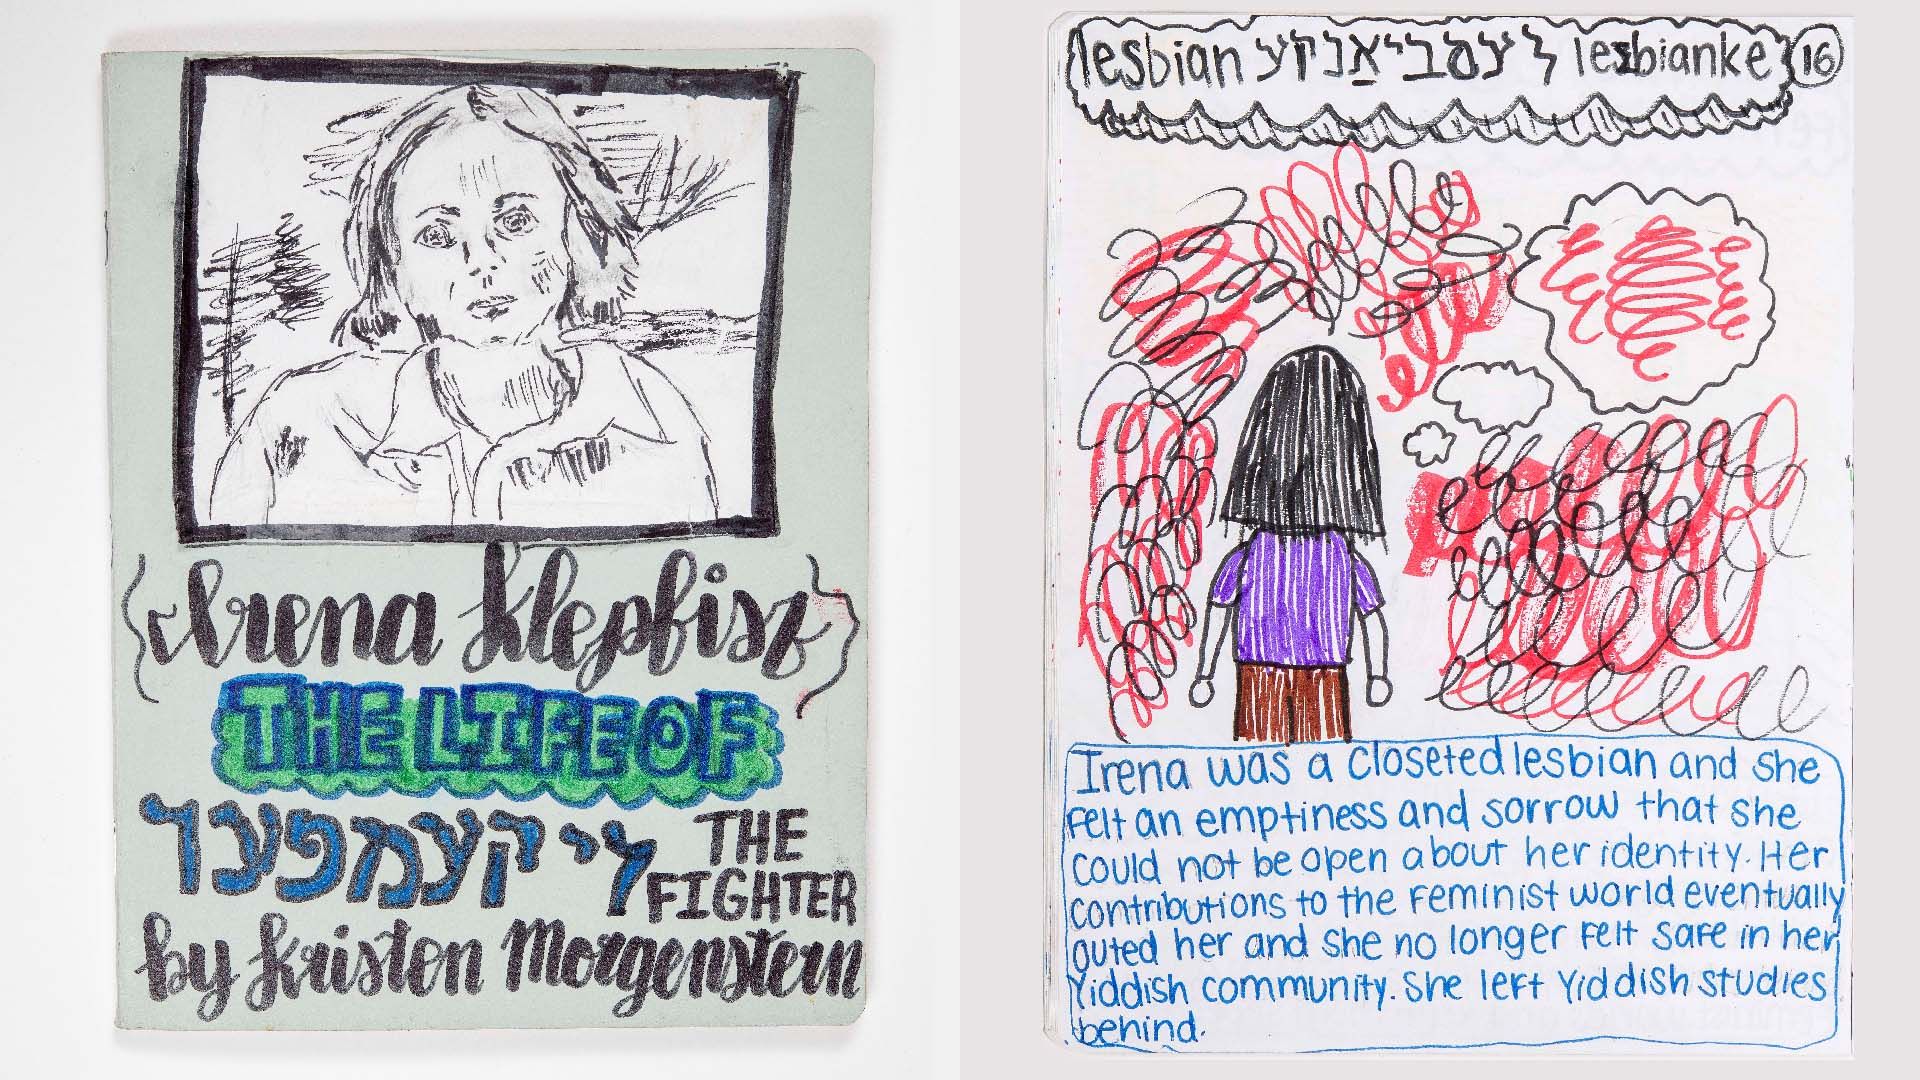 Irena Klepfisz
THE LIFE OF
די קעמפער
THE
FIGHTER
by Kriston Morgenstern
lesbian לעסביאַנקע lezbianke 16
Irena was a closeted lesbian and she
felt an emptiness and sorrow that she
could not be open about her identity. Her
contributions to the feminist world eventually
outed her and she no longer felt safe in her
Yiddish community. She left Yiddish studies
behind.